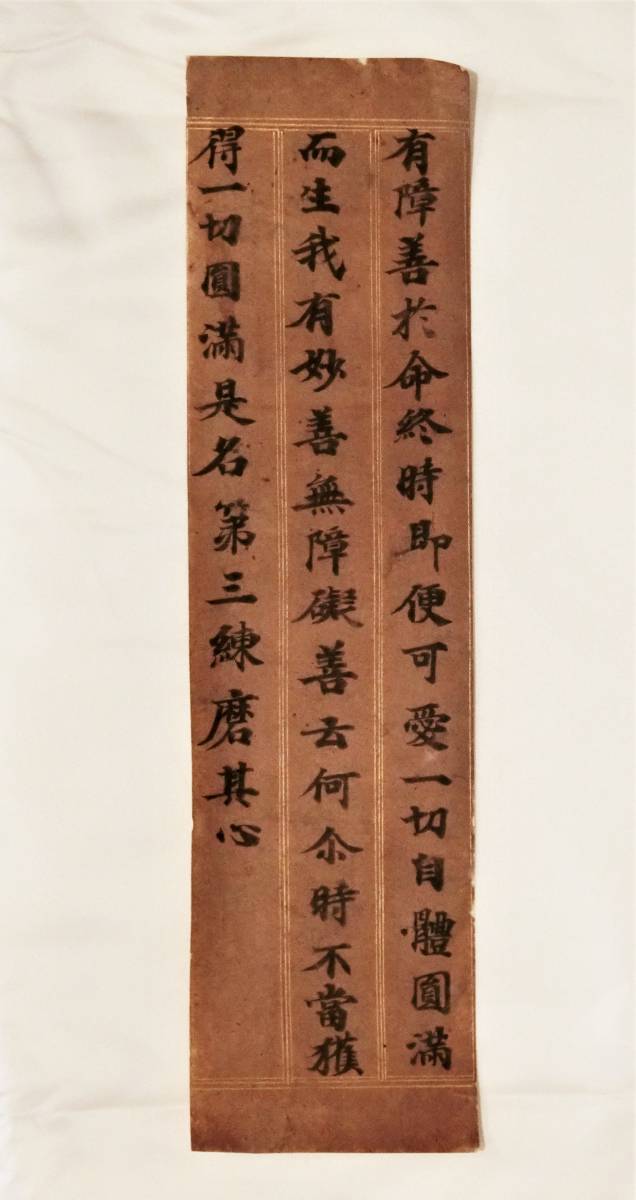 有障善於命終時即便可愛一切自體圓滿
而生我有妙善無障礙善云何尒時不當獲
得一切圓滿是名第三練磨其心